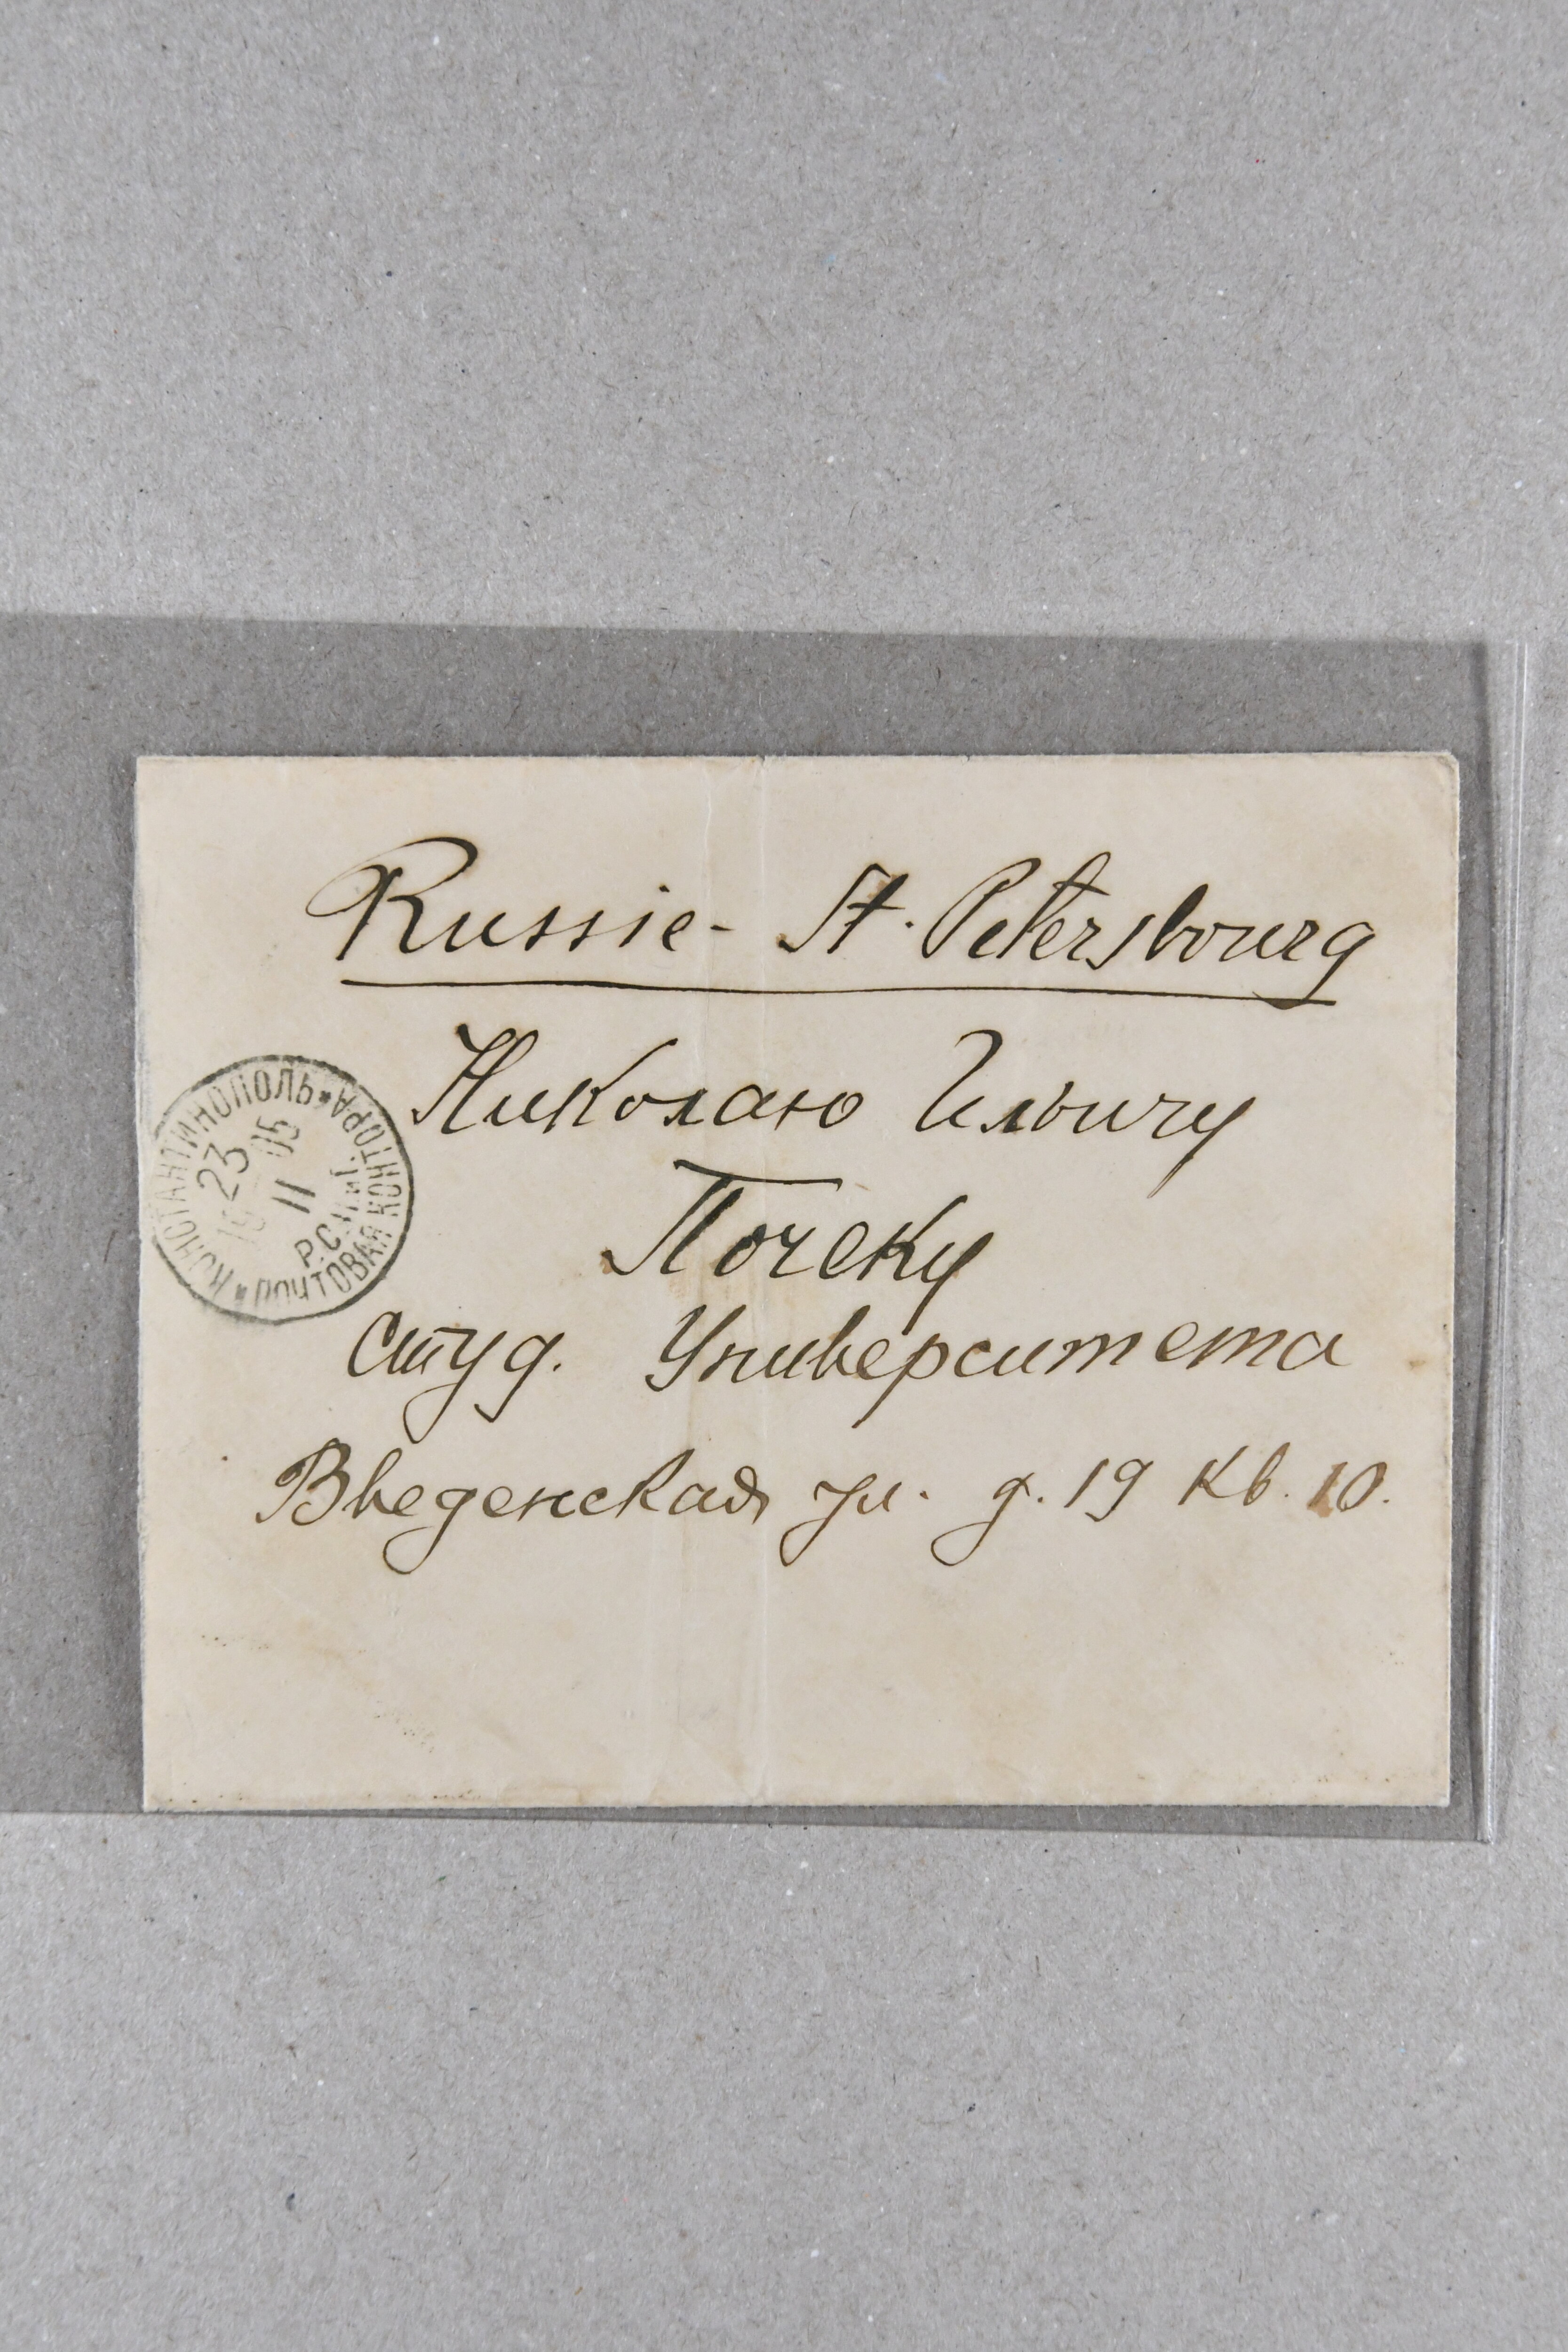 Russie - St. Petersbourg
Николаю Ильичу
Почеку
Студ. Университета
Введенская ул. д. 19 кв. 10.
КОНСТАНТИНОПОЛЬ * ПОЧТОВАЯ КОНТОРА *
23
11
05